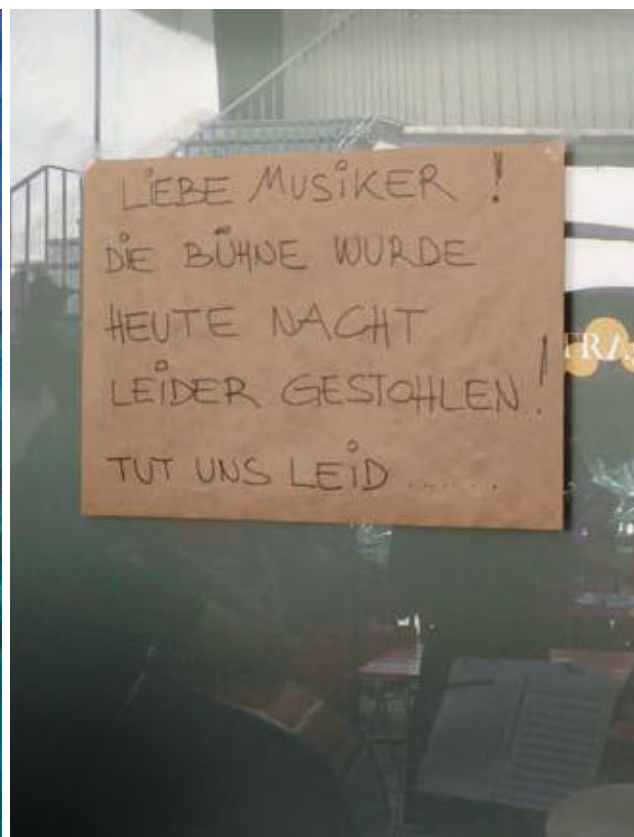 LIEBE MUSIKER !
DIE BÜHNE WURDE
HEUTE NACHT
LEIDER GESTOHLEN !
TUT UNS LEID .......